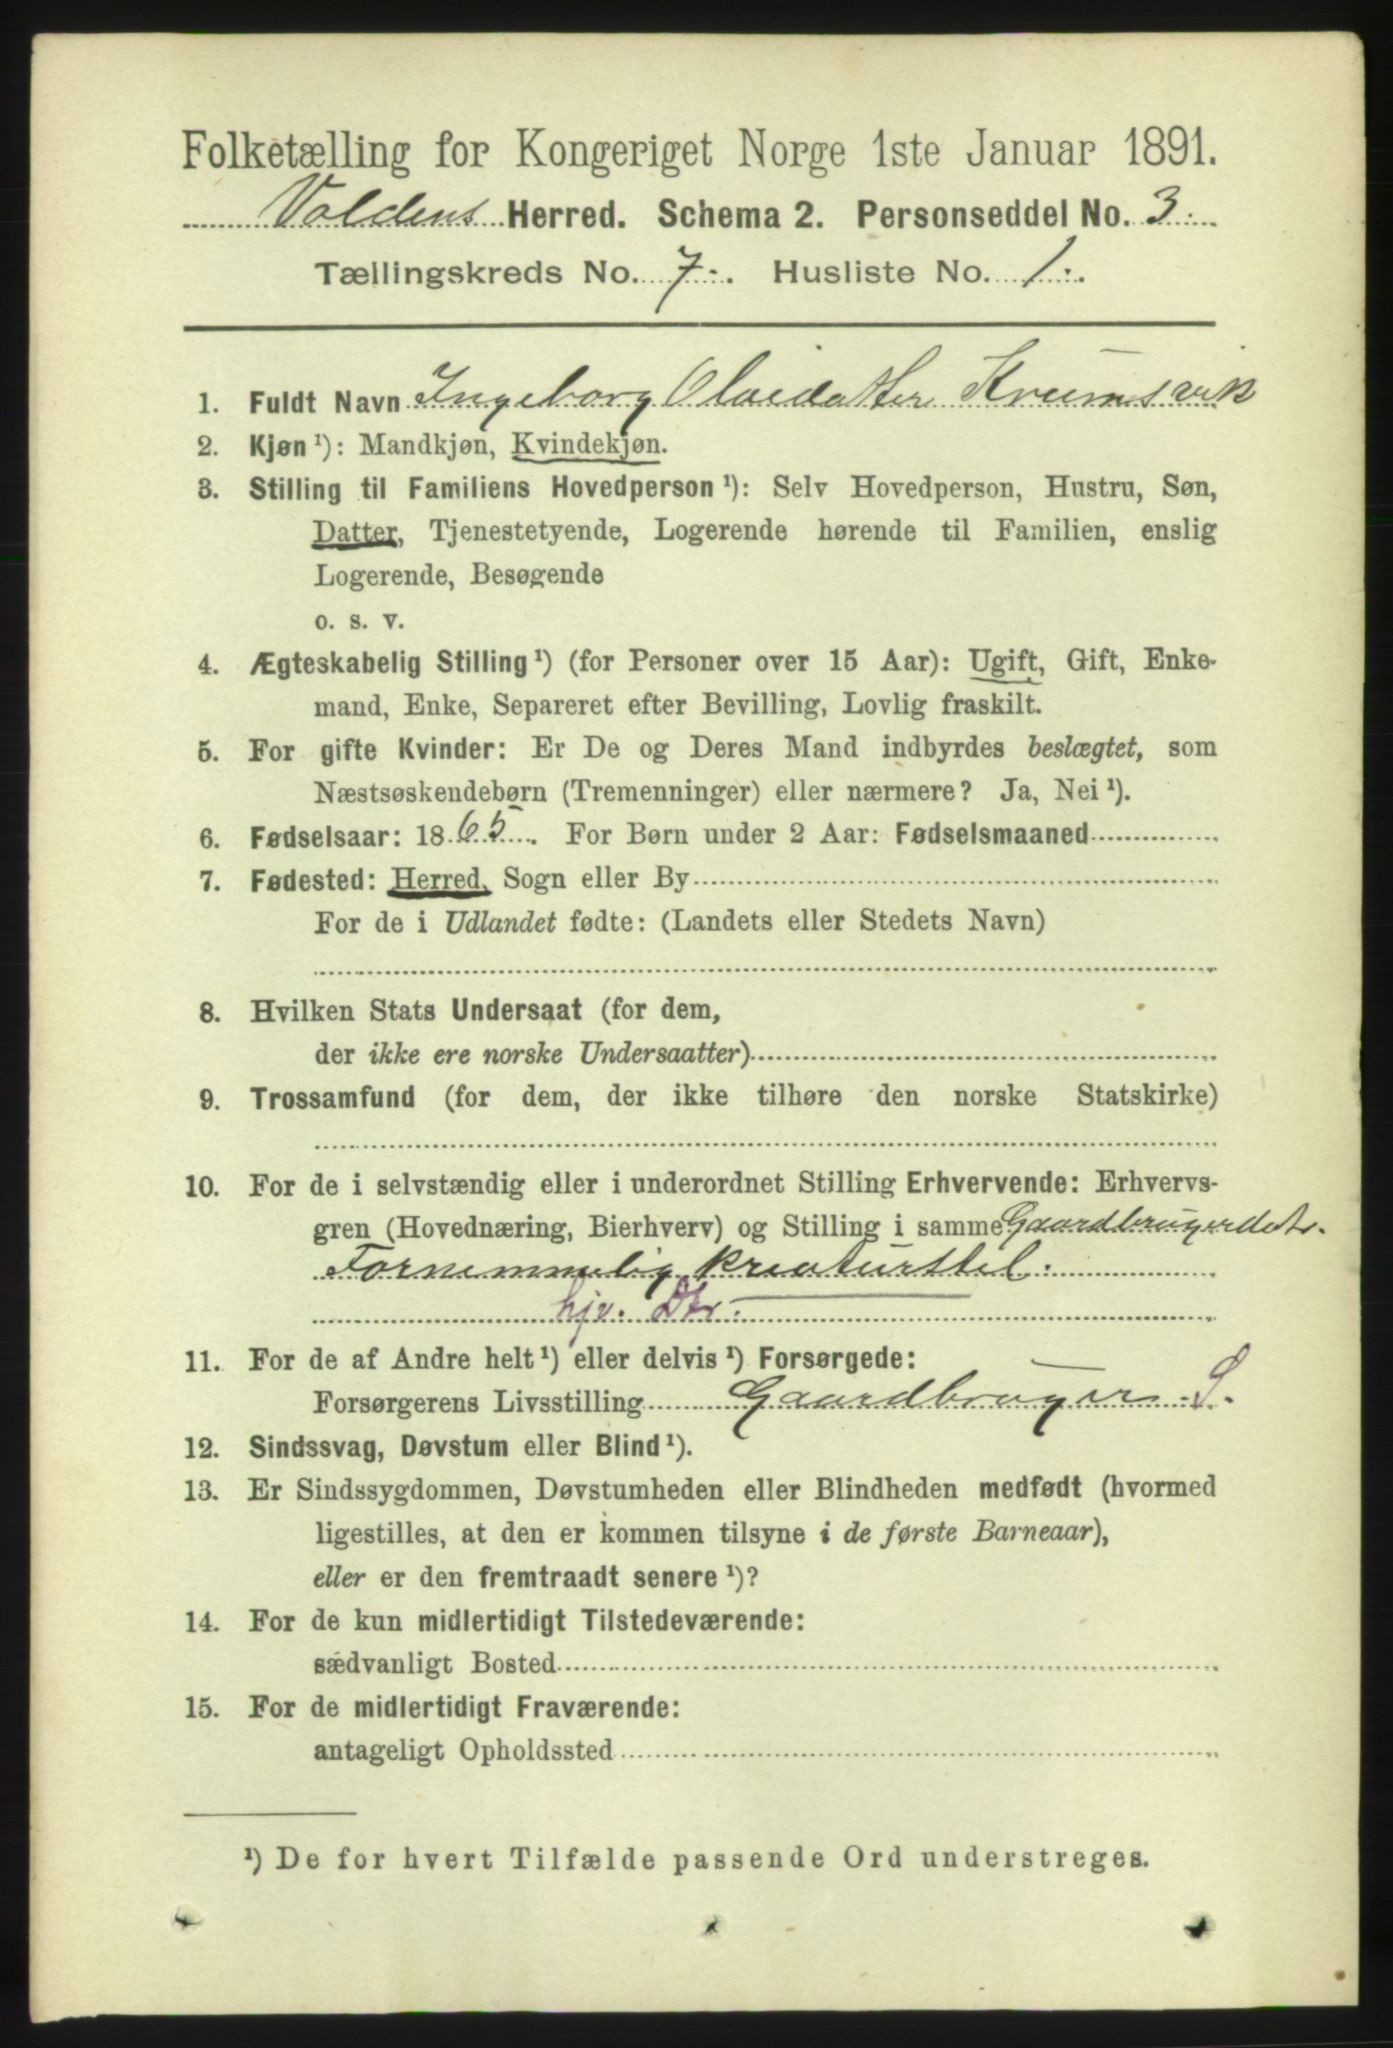 Folketælling for Kongeriget Norge 1ste Januar 1891.
Voldens Herred. Schema 2. Personseddel No. 3.
Tællingskreds No. 7. Husliste No. 1.
1. Fuldt Navn Ingeborg Olaidatter Krumsvik
2. Kjøn ¹): Mandkjøn, Kvindekjøn.
3. Stilling til Familiens Hovedperson ¹): Selv Hovedperson, Hustru, Søn,
Datter, Tjenestetyende, Logerende hørende til Familien, enslig
Logerende, Besøgende
o. s. v.
4. Ægteskabelig Stilling ¹) (for Personer over 15 Aar): Ugift, Gift, Enke-
mand, Enke, Separeret efter Bevilling, Lovlig fraskilt.
5. For gifte Kvinder: Er De og Deres Mand indbyrdes beslægtet, som
Næstsøskendebørn (Tremenninger) eller nærmere? Ja, Nei ¹).
6. Fødselsaar: 1865. For Børn under 2 Aar: Fødselsmaaned
7. Fødested: Herred, Sogn eller By
For de i Udlandet fødte: (Landets eller Stedets Navn)
8. Hvilken Stats Undersaat (for dem,
der ikke ere norske Undersaatter)
9. Trossamfund (for dem, der ikke tilhøre den norske Statskirke)
10. For de i selvstændig eller i underordnet Stilling Erhvervende: Erhvervs-
gren (Hovednæring, Bierhverv) og Stilling i samme Gaardbrugerdatr.
Fornemmelig kreaturstel.
hjv. Dtr.
11. For de af Andre helt ¹) eller delvis ¹) Forsørgede:
Forsørgerens Livsstilling Gaardbruger. S.
12. Sindssvag, Døvstum eller Blind ¹).
13. Er Sindssygdommen, Døvstumheden eller Blindheden medfødt (hvormed
ligestilles, at den er kommen tilsyne i de første Barneaar),
eller er den fremtraadt senere ¹)?
14. For de kun midlertidigt Tilstedeværende:
sædvanligt Bosted
15. For de midlertidigt Fraværende:
antageligt Opholdssted
¹) De for hvert Tilfælde passende Ord understreges.